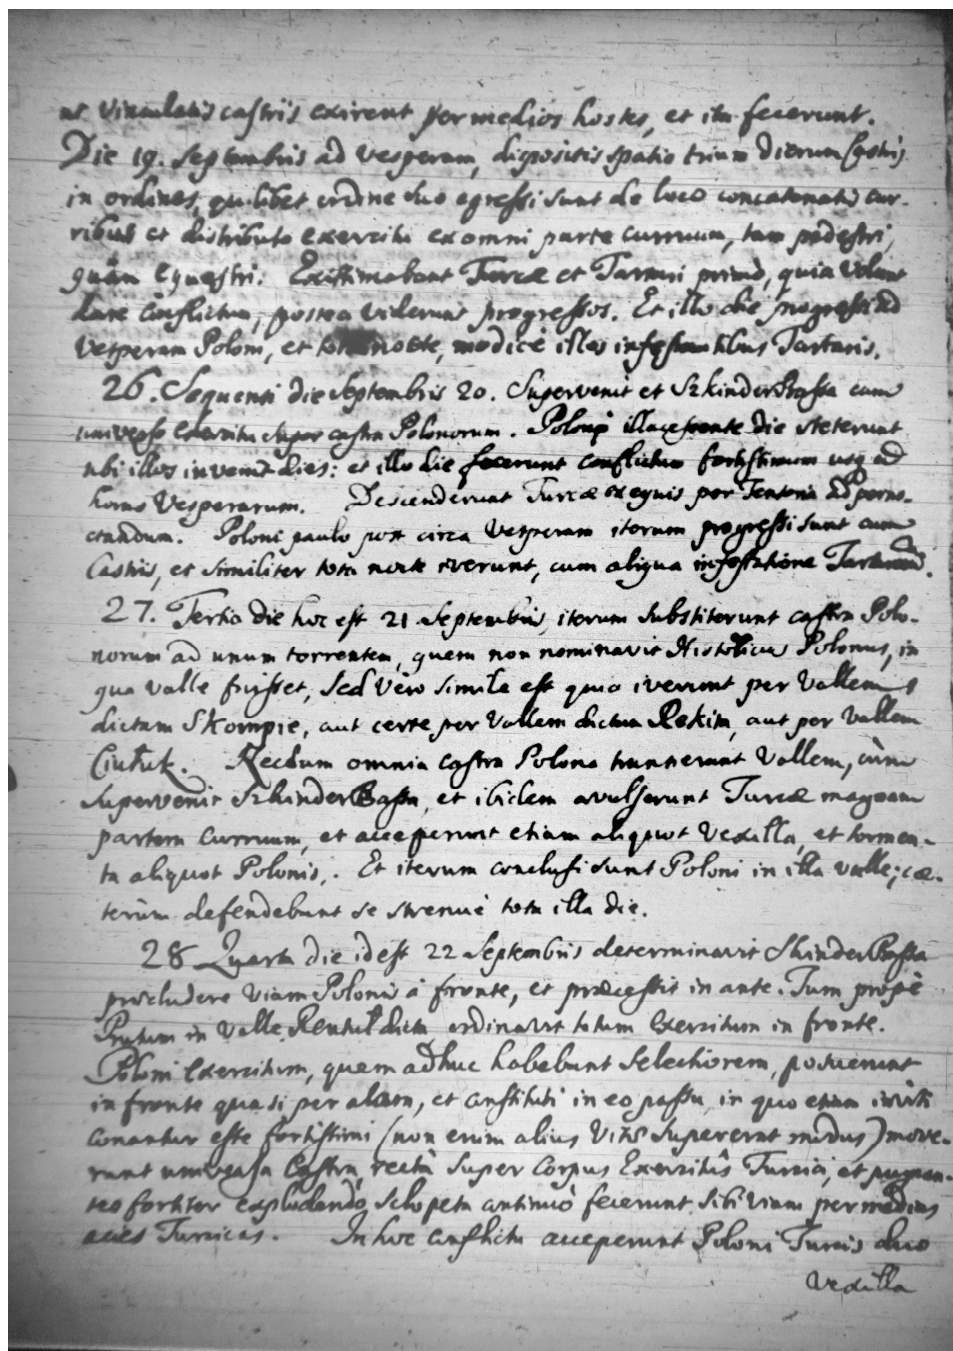 ut vinculatis castris exirent per medios hostes, et ita fecerunt.
Die 19. Septembris ad vesperam, dispositis spatio trium dierum Castris
in ordines, quilibet ordine suo egressi sunt de loco concatenatis cur-
ribus et distributo exercitu ex omni parte curruum, tam pedestri,
quàm equestri. Existimabant Turcæ et Tartari primò, quia volunt
dare conflictum, postea viderunt progressos. Et illo die progressi ad
vesperam Poloni, et tota nocte, modicè illos infestantibus Tartaris.
26. Sequenti die Septembris 20. Supervenit et Szkinder Bassa cum
universo exercitu super castra Polonorum. Poloni illucescente die steterunt
ubi illos invenit dies: et illo die fecerunt conflictum fortissimum usq ad
horas Vesperarum. Descenderunt Turcæ ex equis per Tentoria ad perno-
ctandum. Poloni paulo post circa Vesperam iterum progressi sunt cum
Castris, et similiter tota nocte iverunt, cum aliqua infestatione Tartarorū.
27. Tertia die hoc est 21 Septembris, iterum substiterunt castra Polo-
norum ad unum torrentem, quem non nominavit Historicus Polonus, in
qua valle fuisset, sed vero simile est quia iverunt per Vallem
dictam Skompie, aut certe per Vallem dictam Rekim, aut per Vallem
Ciuhuk. Nedum omnia castra Polona transierunt Vallem, cùm
supervenit Szkinder Bassa, et ibidem avulserunt Turcæ magnam
partem curruum, et acceperunt etiam aliquot Vexilla, et tormen-
ta aliquot Polonis. Et iterum conclusi sunt Poloni in illa valle; cæ-
terùm defendebant se strenuè tota illa die.
28 Quarta die id est 22 Septembris determinavit Skinder Bassa
præcludere viam Polonis à fronte, et præcessit in ante. Tum propè
Prutum in Valle Rentul dicta ordinavit totum exercitum in fronte.
Poloni exercitum, quem adhuc habebant selectiorem, posuerunt
in fronte quasi per alam, et constituti in eo passu, in quo etiam inviti
conantur esse fortissimi (non enim alius vitæ supererat modus) move-
runt universa Castra, rectà super corpus Exercitûs Turcici, et pugnan-
teo fortiter explodendo sclopeta continuò fecerunt sibi viam per medias
acies Turcicas. In hoc conflictu acceperunt Poloni Turcis duo
Vexilla